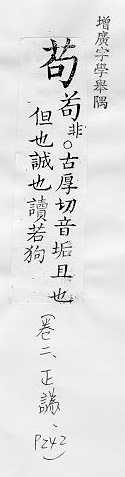 增廣字學舉隅
茍苟非○古厚切音垢且也
但也誠也讀若狗
(卷二、正譌、P242)